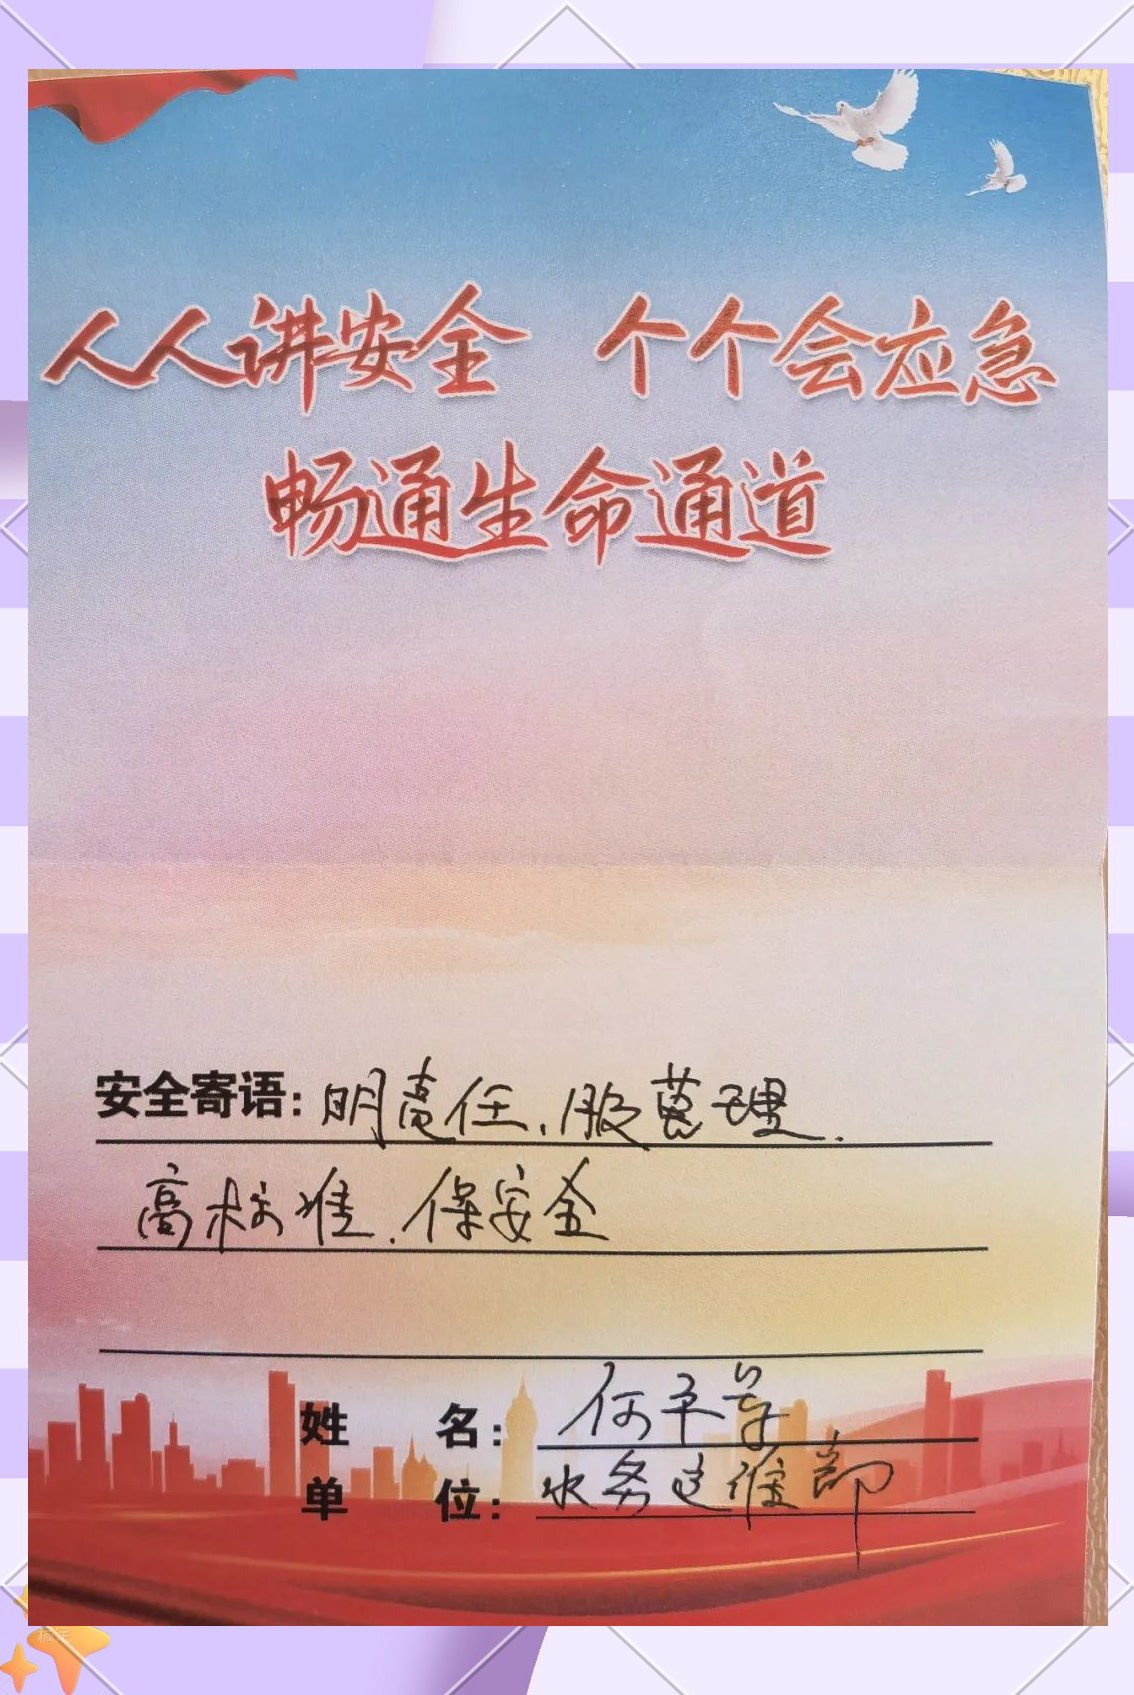 人人讲安全 个个会应急
畅通生命通道
安全寄语：明责任、服管理.
高标准、保安全
姓 名：何平
单 位：水务运维部